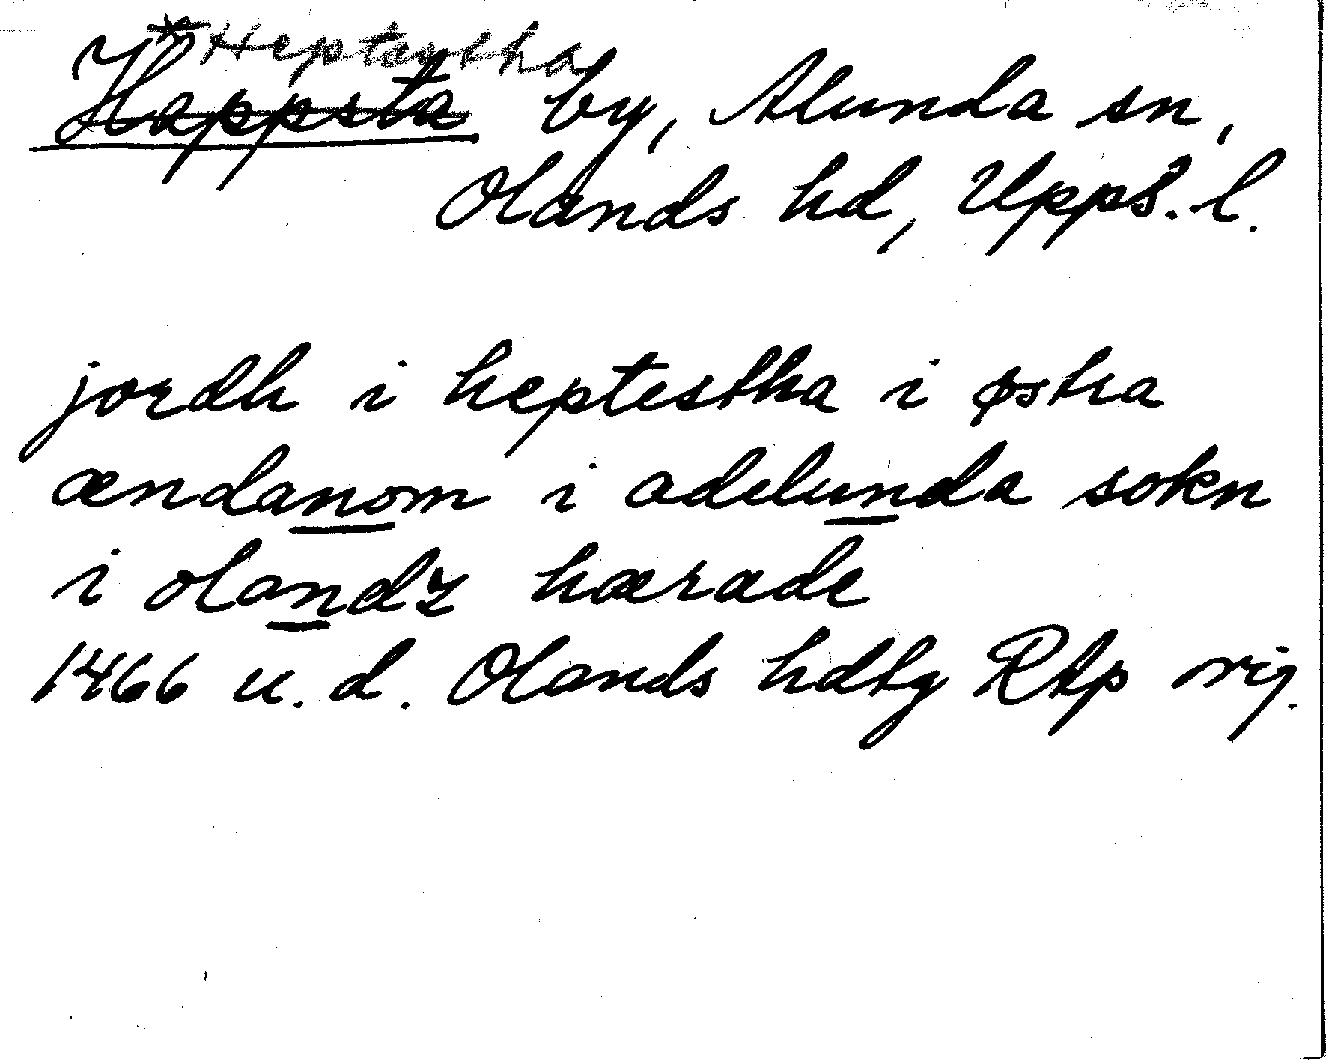 * Heptæstha
Happsta by, Alunda sn,
Olands hd, Upps. l.
jordh i heptestha i østra
ændanom i adelunda sokn
i olandz hærade
1466 u. d. Olands hdtg Rtp orig.